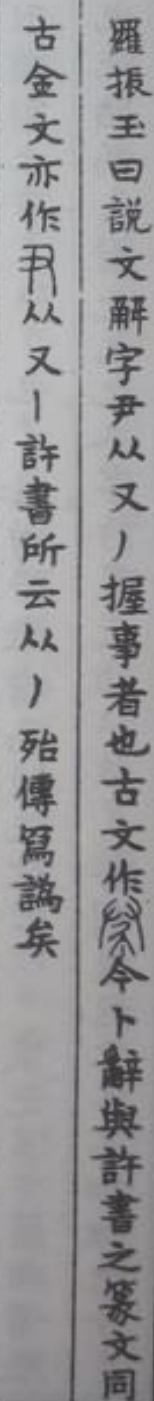 羅振玉曰説文解字尹从又丿握事者也古文作今卜辭與許書之篆文同
古金文亦作从又丨許書所云从丿殆傳寫譌矣